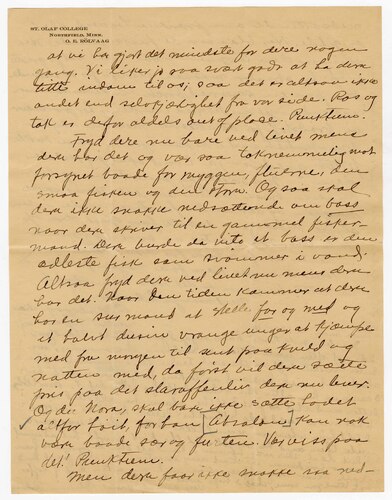 ST. OLAF COLLEGE
NORTHFIELD, MINN.
O. E. RÖLVAAG
at vi har gjort det mindste for dere nogen
gang. Vi liker jo saa svært godt at ha dere
tittende indom til os; saa det er altsaa ikke
andet end selvskyldighet fra vor side. Ros og
tak er derfor aldeles out of place. Punktum.
Fryd dere nu bare ved livet mens
dere har det og vær saa taknemmelig mot
forsynet baade for myggen, fluerne, den
smaa fisken og den store. Og saa skal
dere ikke snakke nedsættende om bass
naar dere skriver til en gammel fisker-
mand. Dere burde da vite at bass er den
ædleste fisk som svømmer i vand.
Altsaa fryd dere ved livet nu mens dere
har det. Naar den tiden kommer at dere
har en sur mand at stelle for og med og
et halvt dusin vrange unger at kjæmpe
med fra morgen til sent paa kveld og
natten med, da først vil dere sætte
pris paa det slaraffenliv dere nu lever.
Og du Nora, skal bare ikke sætte hodet
altfor høit, for han [Absalon] kan nok
være baade sur og Vær viss paa
det! Punktum.
Men dere faar ikke snakke saa ned-